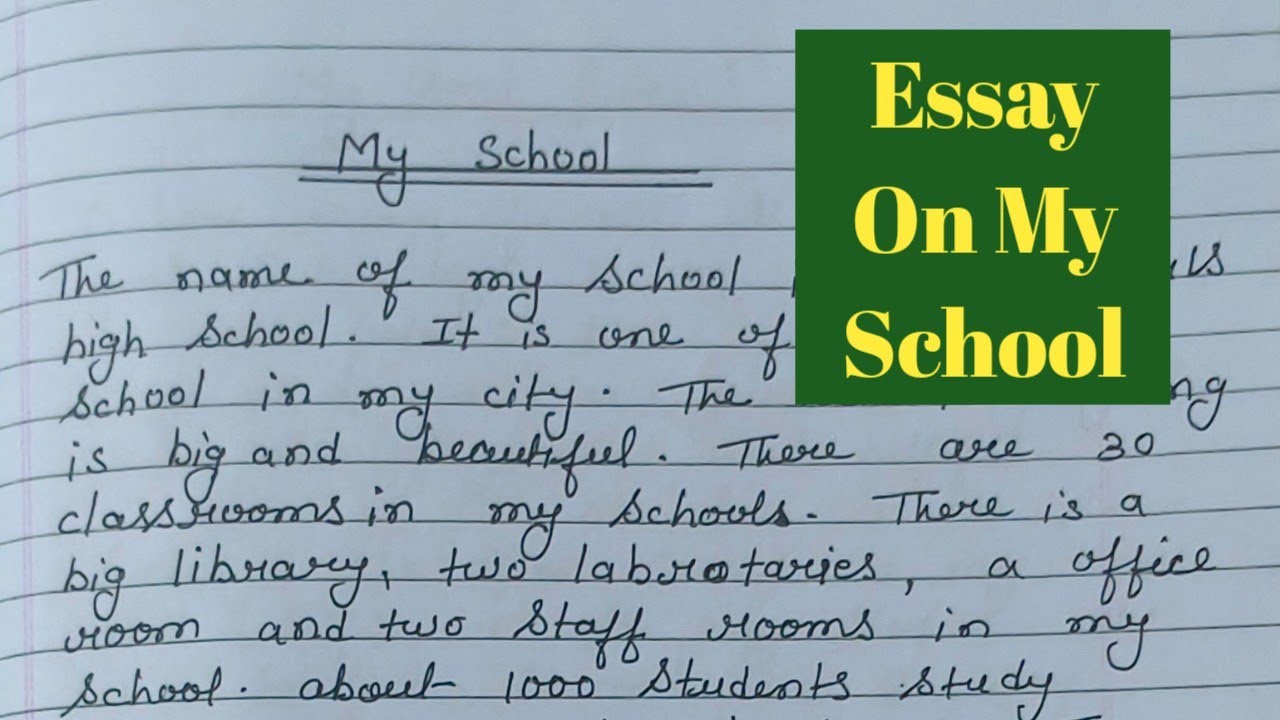 My School
Essay
On My
School
The name of my School
high School. It is one of
School in my city. The
is big and beautiful. There are 30
classrooms in my Schools. There is a
big library, two labrotaries, a office
room and two Staff rooms in my
School. about 1000 Students study